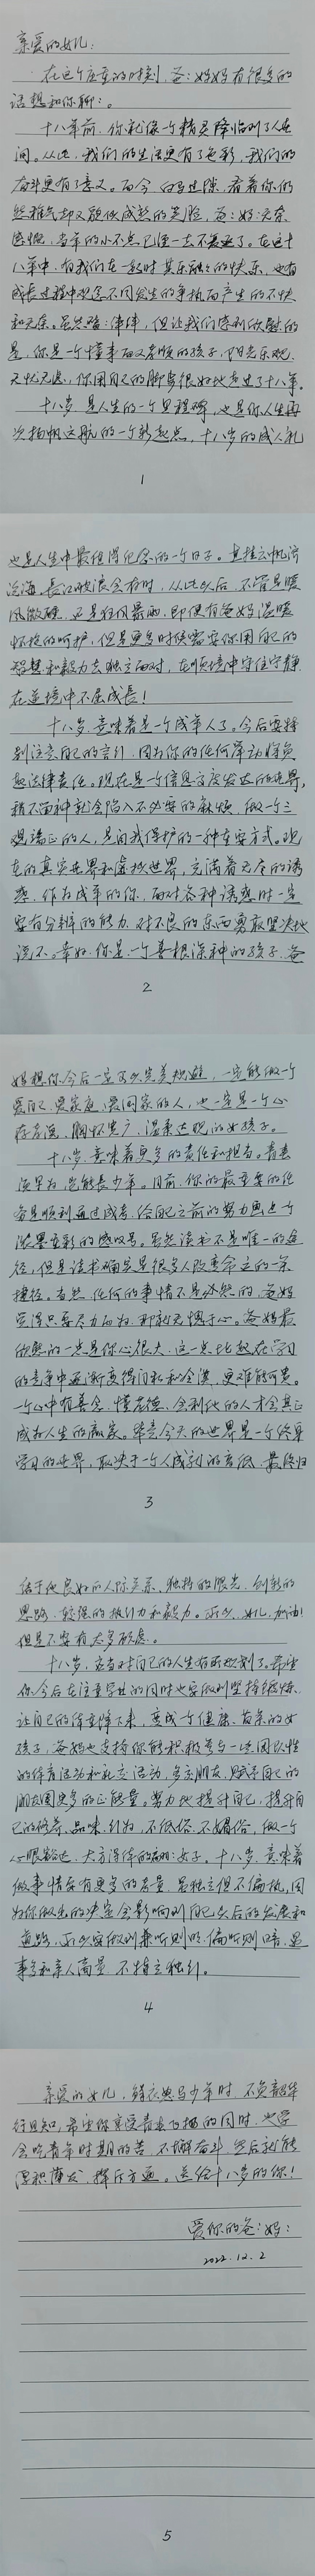 亲爱的女儿:
在这个庄重的时刻,爸:妈妈有很多的
话想和你聊:。
十八年前,你就像一个精灵降临到了人世
间。从此,我们的生活更有了色彩,我们的
奋斗更有了意义。而今,白马过隙,看着你仍
然稚气却又貌似成熟的笑脸,爸:妈:
感慨,当年的小不点已经一去不复返了。在这十
八年中,有我们在一起时其乐融融的快乐,也有
成长过程中观念不同发生的争执而产生的不快
和无奈。虽然磕:绊绊,但让我们感到欣慰的
是,你是一个懂事而又孝顺的孩子,阳光乐观,
无忧无虑,你用自己的脚步很好地走过了十八年。
十八岁,是人生的一个里程碑,也是你人生再
次扬帆远航的一个新起点,十八岁的成人礼
1
也是人生中最值得纪念的一个日子。直挂云帆济
沧海,长江破浪会有时,从此以后,不管是暖
风微醺,还是狂风暴雨,即便有爸妈温暖
怀抱的呵护,但是更多时候需要你用自己的
智慧和毅力去独立面对,在顺境中守住宁静,
在逆境中不屈成长!
十八岁,意味着是一个成年人了。今后要特
别注意自己的言行,因为你的任何举动将负
起法律责任。现在是一个信息高度发达的世界,
稍不留神就会陷入不必要的麻烦,做一个三
观端正的人,是自我保护的一种重要方式。现
在的真实世界和虚拟世界,充满着无尽的诱
惑,作为成年的你,面对各种诱惑时一定
要有分辨的能力,对不良的东西勇敢坚决地
说不。幸好,你是一个善根深种的孩子,爸
2
妈想你今后一定可以完美规避,一定能做一个
爱自己、爱家庭、爱国家的人,也一定是一个心
存善念、胸怀宽广、温柔达观的女孩子。
十八岁,意味着更多的责任和担当。青春
须早为,岂能长少年。目前,你的最重要的任
务是顺利通过高考,给自己之前的努力画上一个
浓墨重彩的感叹号。虽然读书不是唯一的途
径,但是读书确实是很多人改变命运的一条
捷径。当然,任何的事情不是必然的,爸妈
觉得只要尽力而为,那就无愧于心。爸妈最
欣慰的一点是你心很大,这一点比起在学习
的竞争中逐渐变得自私和全浅,更难能可贵。
一个心中有善念、懂感德、会利他的人才会真正
成为人生的赢家。毕竟今天的世界是一个终身
学习的世界,取决于一个人成就的高低,最终归
3
结于他良好的人际关系、独特的眼光、创新的
思路、较强的执行力和毅力。所以,女儿,加油!
但是不要有太多顾虑。
十八岁,应当对自己的人生有所规划了。希望
你今后在注重学业的同时也要做到坚持锻炼,
让自己的体重降下来,变成一个健康、苗条的女
孩子,爸妈也支持你能积极参与一些团队性
的体育活动和社交活动,多交朋友,赋予自己的
朋友圈更多的正能量。努力地提升自己,提升自
己的修养、品味、行为,不低俗、不媚俗,做一个
心眼豁达、大方得体的聪:女子。十八岁,意味着
做事情应有更多的考量,是独立但不偏执,因
为你做出的决定会影响到自己以后的发展和
道路,所以要做到兼听则明、偏听则暗,遇
事多和亲人商量,不特立独行。
4
亲爱的女儿,鲜衣怒马少年时,不负韶华
行且知,希望你享受青春飞扬的同时,也学
会吃青年时期的苦,不懈奋斗,然后就能
厚积薄发,挥斥方遒。送给十八岁的你!
爱你的爸:妈:
2022.12.2
5